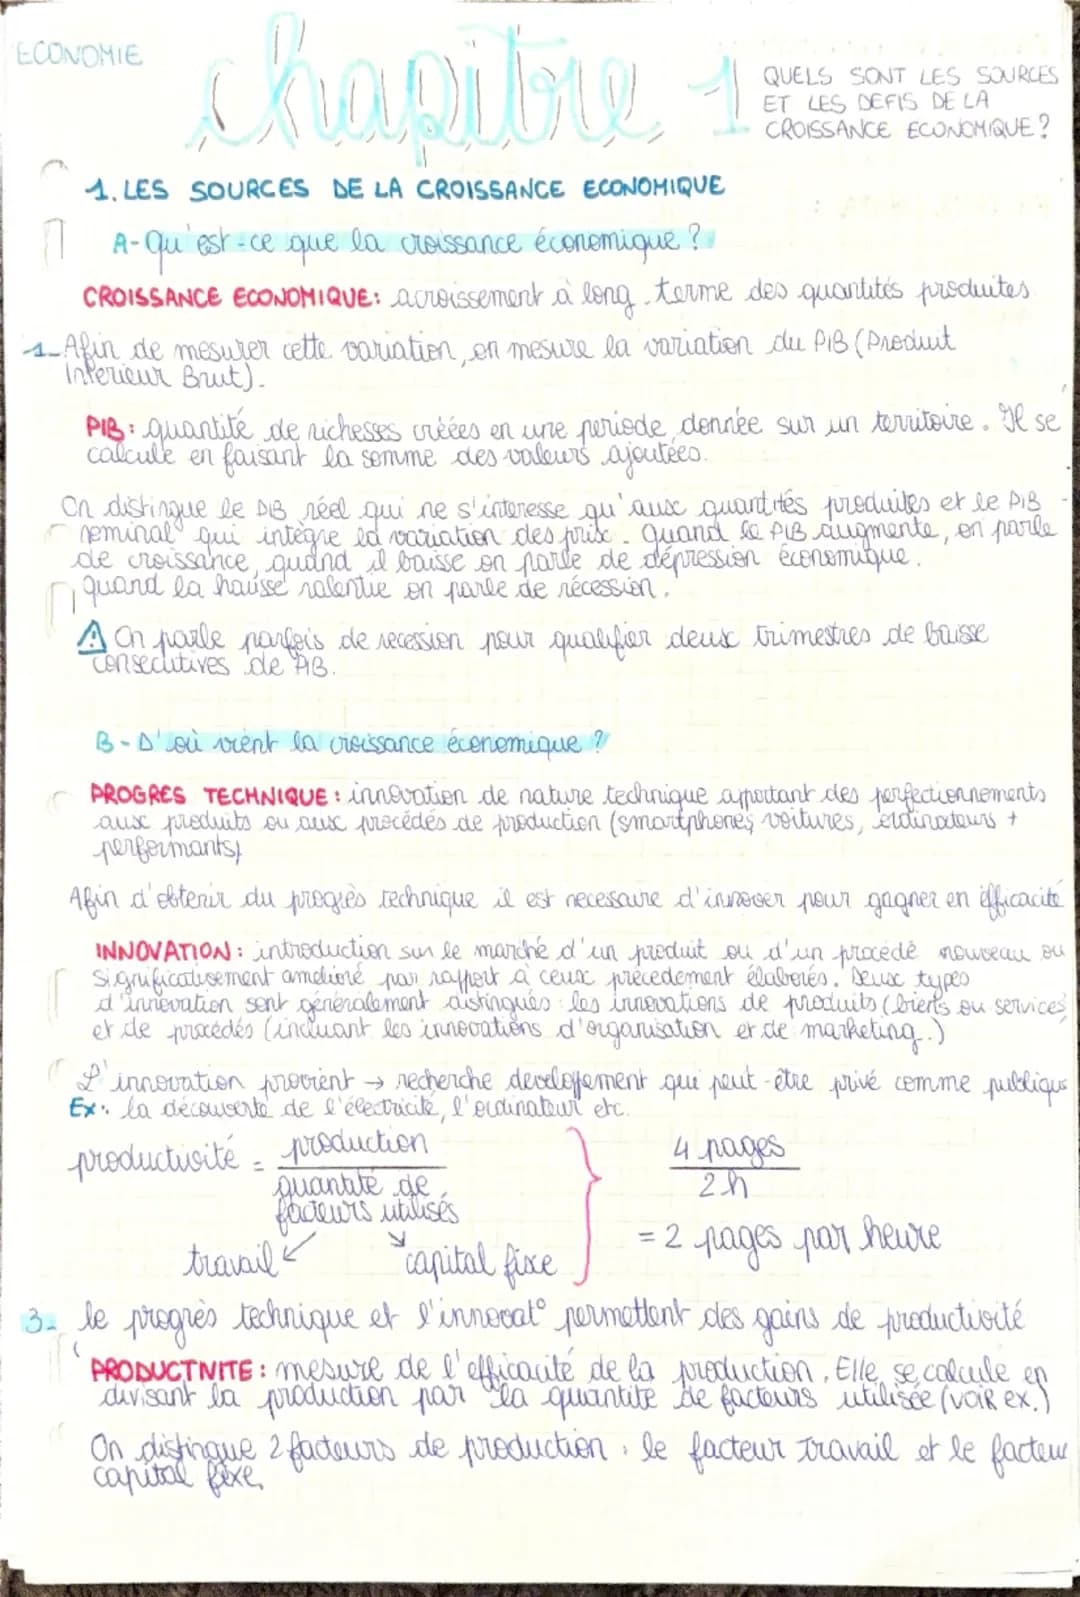 ECONOMIE
chapitre 1
QUELS SONT LES SOURCES
ET LES DEFIS DE LA
CROISSANCE ECONOMIQUE?
1. LES SOURCES DE LA CROISSANCE ECONOMIQUE
A- Qu'est-ce que la croissance économique?
CROISSANCE ECONOMIQUE: accroissement à long terme des quantités produites
1- Afin de mesurer cette variation, on mesure la variation du PIB (Produit
Interieur Brut).
PIB: quantité de richesses créées en une periode donnée sur un territoire. Il se
calcule en faisant la somme des valeurs ajoutées.
On distingue le PIB réel qui ne s'interesse qu'aux quantités produites et le PIB
nominal qui intègre la variation des prix. Quand le PIB augmente, on parle
de croissance, quand il baisse on parle de dépression économique.
quand la hausse ralentie on parle de récession.
⚠ On parle parfois de recession pour qualifier deux trimestres de baisse
consecutives de PIB.
B - D'où vient la croissance économique?
PROGRES TECHNIQUE: innovation de nature technique apportant des perfectionnements
aux produits ou aux procédés de production (smartphones, voitures, ordinateurs +
performants)
Afin d'obtenir du progrès technique il est necessaire d'innover pour gagner en efficacité
INNOVATION: introduction sur le marché d'un produit ou d'un procédé nouveau ou
significativement amélioré par rapport à ceux précedement élaborés. Deux types
d'innovation sont généralement distingués: les innovations de produits (biens ou services)
et de procédés (incluant les innovations d'organisation et de marketing..)
L'innovation provient → recherche developpement qui peut-être privé comme publique
Ex: la découverte de l'électricité, l'ordinateur etc.
productivité = production
quantité de
facteurs utilisés
travail capital fixe
4 pages
2h
= 2 pages par heure
3- le progrès technique et l'innovat° permettent des gains de productivité
PRODUCTIVITE: mesure de l'efficacité de la production. Elle se calcule en
divisant la production par la quantité de facteurs utilisée (voir ex.)
On distingue 2 facteurs de production: le facteur travail et le facteur
capital fixe.